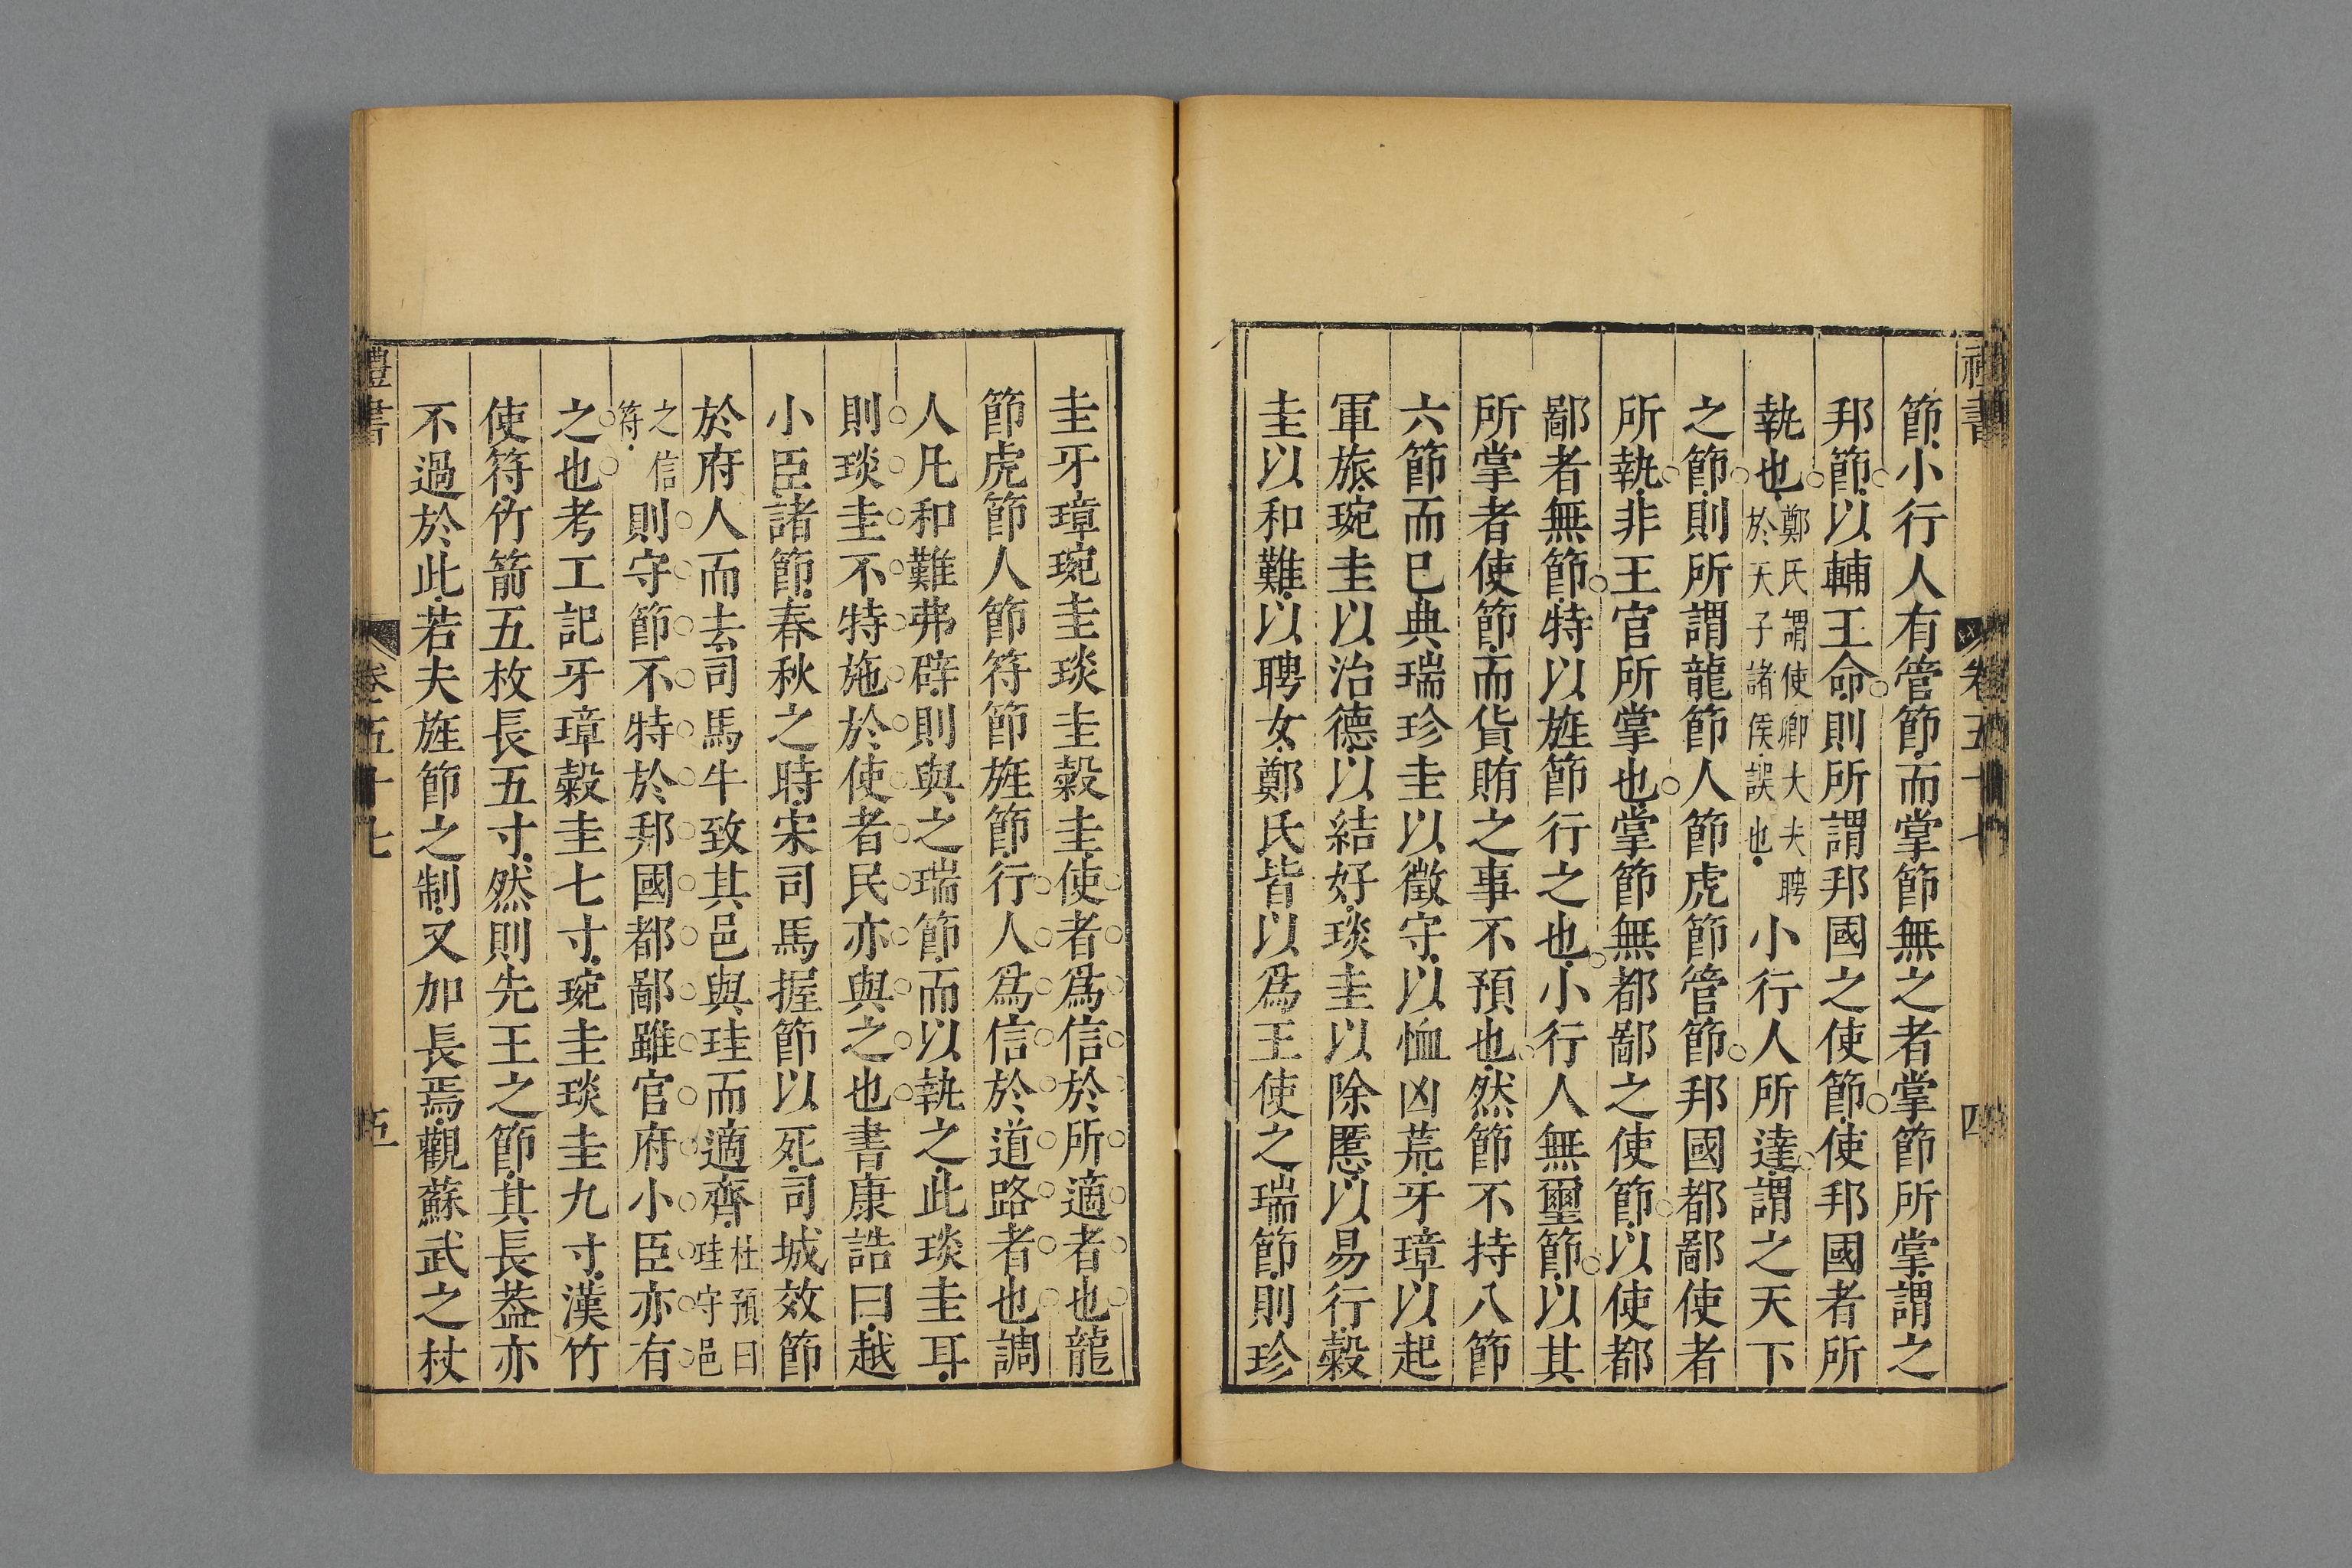 禮書
卷五十七
四
節小行人有管節而掌節無之者掌節所掌謂之
邦節以輔王命則所謂邦國之使節使邦國者所
執也鄭氏謂使卿大夫聘於天子諸侯誤也小行人所達謂之天下
之節則所謂龍節人節虎節管節邦國都鄙使者
所執非王官所掌也掌節無都鄙之使節以使都
鄙者無節特以旌節行之也小行人無璽節以其
所掌者使節而貨賄之事不預也然節不持八節
六節而已典瑞珍圭以徵守以恤凶荒牙璋以起
軍旅琬圭以治德以結好琰圭以除慝以易行穀
圭以和難以聘女鄭氏皆以爲王使之瑞節則珍
圭牙璋琬圭琰圭穀圭使者爲信於所適者也龍
節虎節人節符節旌節行人爲信於道路者也調
人凡和難弗辟則與之瑞節而以執之此琰圭耳
則琰圭不特施於使者民亦與之也書康誥曰越
小臣諸節春秋之時宋司馬握節以死司城效節
於府人而去司馬牛致其邑與珪而適齊杜預曰珪守邑
之信符則守節不特於邦國都鄙雖官府小臣亦有
之也考工記牙璋穀圭七寸琬圭琰圭九寸漢竹
使符竹箭五枚長五寸然則先王之節其長葢亦
不過於此若夫旌節之制又加長焉觀蘇武之杖
禮書
卷五十七
五